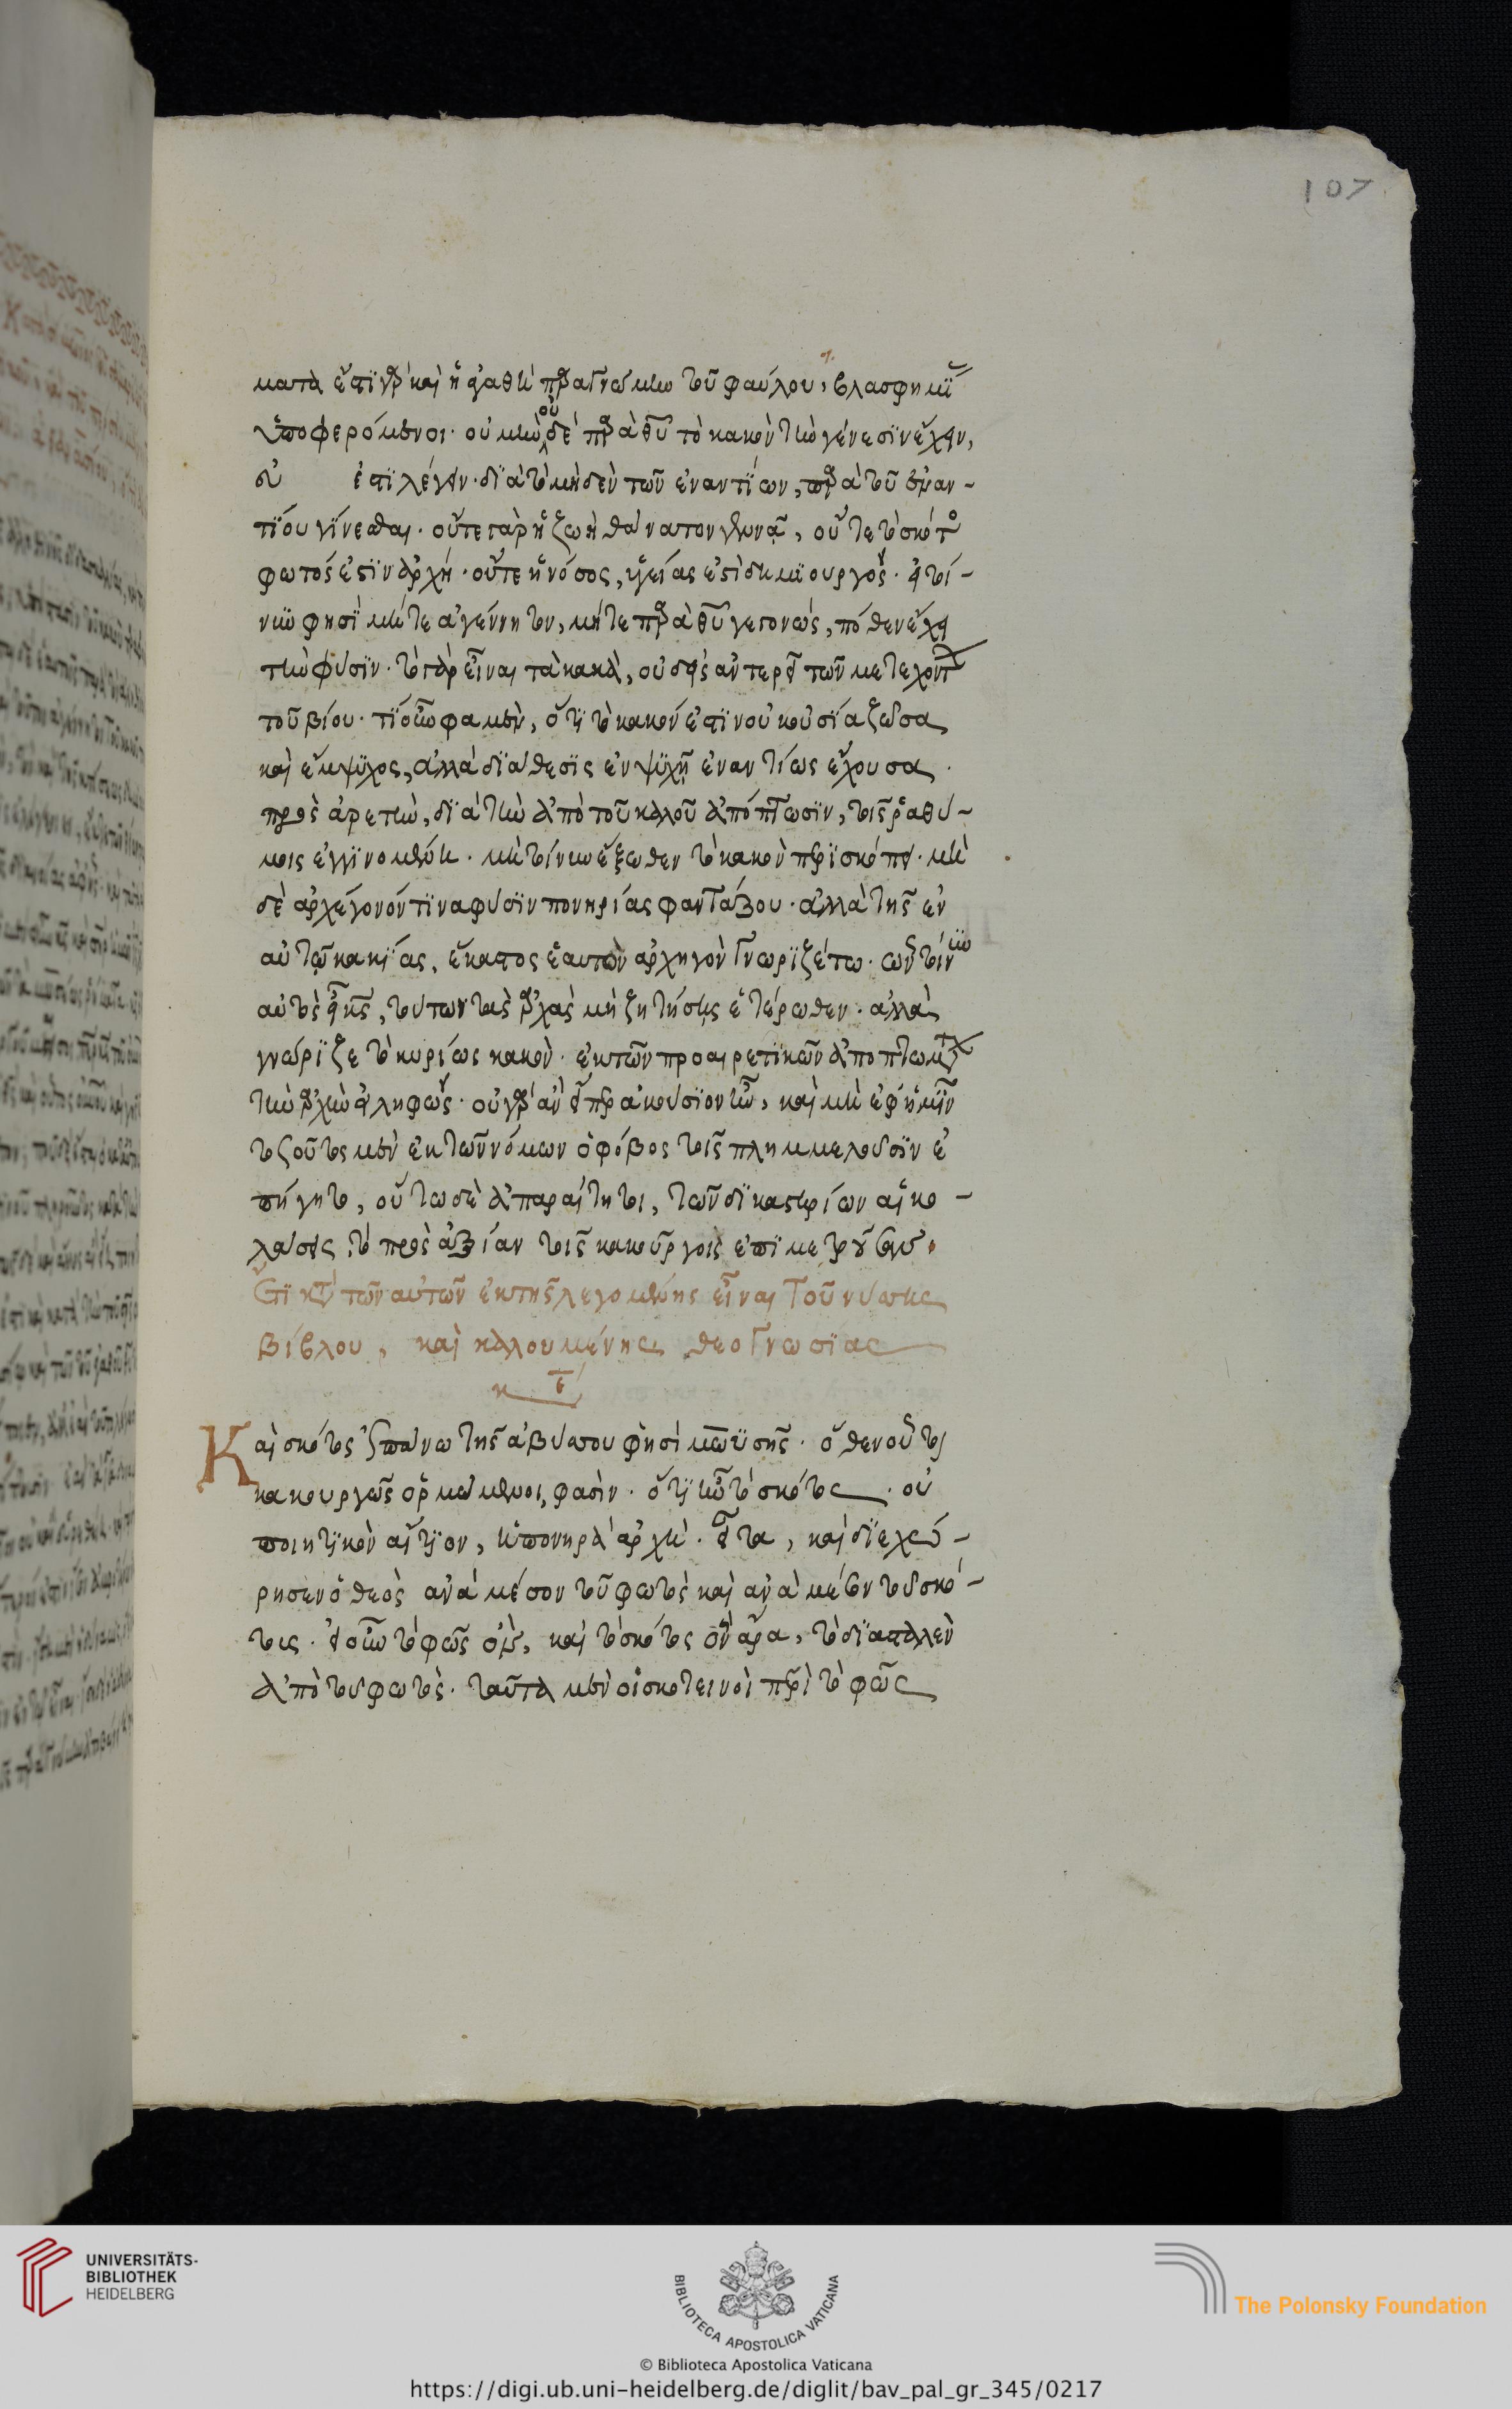 107
ματὰ ἔστι γὰρ καὶ ἡ ἀγαθὴ παρὰ γνώμην τοῦ φαύλου, βλασφημί
ὑποφερόμενοι. οὐ μὴν οὐδὲ παρὰ θεοῦ τὸ κακὸν τὴν γένεσιν ἔχειν,
ἐστὶ λέγειν. διὰ τὸ μηδὲν τῶν ἐναντίων, παρὰ τοῦ ἐναν-
τίου γίνεσθαι. οὔτε γὰρ ἡ ζωὴ θάνατον γεννᾷ, οὔτε τὸ σκότος
φωτός ἐστιν ἀρχή. οὔτε ἡ νόσος, ὑγείας ἐστὶ δημιουργός. εἰ τοί-
νυν φησὶ μήτε ἀγέννητον, μήτε παρὰ θεοῦ γεγονώς, πόθεν ἔχει
τὴν φύσιν. τὸ γὰρ εἶναι τὰ κακὰ, οὐδεὶς ἀντερεῖ τῶν μετεχόντων
τοῦ βίου. τί οὖν φαμὲν, ὅτι τὸ κακόν ἐστιν οὐκ οὐσία ζῶσα
καὶ ἔμψυχος, ἀλλὰ διάθεσις ἐν ψυχῇ ἐναντίως ἔχουσα
πρὸς ἀρετὴν, διὰ τὴν ἀπὸ τοῦ καλοῦ ἀπόπτωσιν, τοῖς ῥαθύ-
μοις ἐγγινομένη. μὴ τοίνυν ἔξωθεν τὸ κακὸν περισκόπει. μὴ
δὲ ἀρχέγονόν τινα φύσιν πονηρίας φαντάζου. ἀλλὰ τῆς ἐν
αὐτῷ κακίας, ἕκαστος ἑαυτὸν ἀρχηγὸν γνωριζέτω. ὧν τοίνυν
αὐτὸς εἶ κύριος, τούτων τὰς ἀρχὰς μὴ ζητήσῃς ἑτέρωθεν. ἀλλὰ
γνώριζε τὸ κυρίως κακὸν. ἐκ τῶν προαιρετικῶν ἀποπτωμάτων
τὴν ἀρχὴν εἰληφώς. οὐ γὰρ ἂν εἴπερ ἀκούσιον ἦν, καὶ μὴ ἐφ' ἡμῖν
τοσοῦτος μὲν ἐκ τῶν νόμων ὁ φόβος τοῖς πλημμελοῦσιν ἐ
πήγητο, οὕτω δὲ ἀπαραίτητοι, τῶν δικαστηρίων αἱ κο-
λάσεις τὸ πρὸς ἀξίαν τοῖς κακούργοις ἐπιμετροῦσαι.
Ἔτι κατὰ τῶν αὐτῶν ἐκ τῆς λεγομένης εἶναι τοῦ νύσσης
βίβλου, καὶ καλουμένης θεογνωσίας
Καὶ σκότος ἐπάνω τῆς ἀβύσσου φησὶ μωϋσῆς. ὅθεν οὗτοι
κακουργῶς ὁρμώμενοι, φασὶν. ὅτι ἦν τὸ σκότος. οὐ
ποιητικὸν αἴτιον, ἢ πονηρὰ ἀρχὴ. εἶτα, καὶ διεχώ-
ρησεν ὁ θεὸς ἀνὰ μέσον τοῦ φωτὸς καὶ ἀνὰ μέσον τοῦ σκό-
τους. εἰ οὖν τὸ φῶς ὂν, καὶ τὸ σκότος ὂν ἄρα, τὸ διασταλὲν
ἀπὸ τοῦ φωτὸς. ταῦτα μὲν οἱ σκοτεινοὶ περὶ τὸ φῶς
UNIVERSITÄTS-
BIBLIOTHEK
HEIDELBERG
BIBLIOTECA APOSTOLICA VATICANA
The Polonsky Foundation
© Biblioteca Apostolica Vaticana
https://digi.ub.uni-heidelberg.de/diglit/bav_pal_gr_345/0217